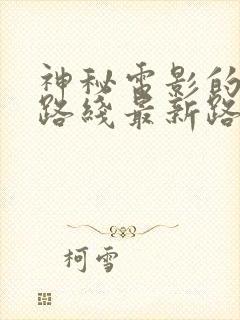 神秘电影的
路线最新路
柯雪